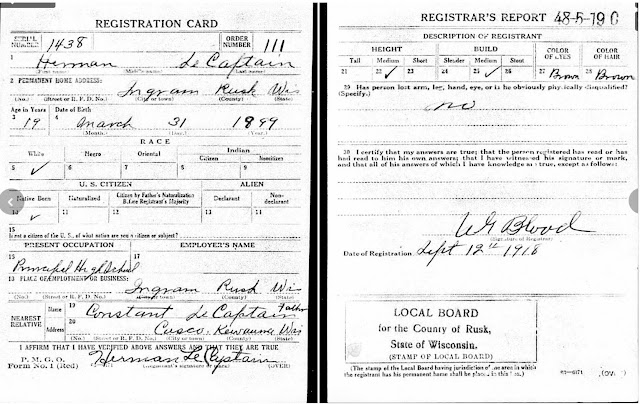 REGISTRATION CARD
SERIAL NUMBER 1438 ORDER NUMBER 111
1 Herman Le Captain
(First name) (Middle name) (Last name)
2 PERMANENT HOME ADDRESS:
Ingram Rusk Wis
(No.) (Street or R. F. D. No.) (City or town) (County) (State)
Age in Years Date of Birth
3 19 4 March 31 1899
(Month.) (Day.) (Year.)
RACE
White Negro Oriental Indian
Citizen Noncitizen
5 ✓ 6 7 8 9
U. S. CITIZEN ALIEN
Native Born Naturalized Citizen by Father's Naturalization Before Registrant's Majority Declarant Non-declarant
10 ✓ 11 12 13 14
15
If not a citizen of the U. S., of what nation are you a citizen or subject?
PRESENT OCCUPATION EMPLOYER'S NAME
16 17
Principal High School
18 PLACE OF EMPLOYMENT OR BUSINESS:
Ingram Rusk Wis
(No.) (Street or R. F. D. No.) (City or town) (County) (State)
NEAREST RELATIVE
Name 19 Constant Le Captain Father
Address 20 Casco Kewaunee Wis
(No.) (Street or R. F. D. No.) (City or town) (County) (State)
I AFFIRM THAT I HAVE VERIFIED ABOVE ANSWERS AND THAT THEY ARE TRUE
P. M. G. O.
Form No. 1 (Red)
Herman Le Captain
(Registrant's signature or mark) (OVER)
REGISTRAR'S REPORT 48-5-19 C
DESCRIPTION OF REGISTRANT
HEIGHT BUILD COLOR OF EYES COLOR OF HAIR
Tall Medium Short Slender Medium Stout
21 22 ✓ 23 24 25 ✓ 26 27 Brown 28 Brown
29 Has person lost arm, leg, hand, eye, or is he obviously physically disqualified?
(Specify.)
no
30 I certify that my answers are true; that the person registered has read or has
had read to him his own answers; that I have witnessed his signature or mark,
and that all of his answers of which I have knowledge are true, except as follows:
W G Blood
(Signature of Registrar)
Date of Registration Sept 12th 1918
LOCAL BOARD
for the County of Rusk,
State of Wisconsin.
(STAMP OF LOCAL BOARD)
(The stamp of the Local Board having jurisdiction of the area in which
the registrant has his permanent home shall be placed in this box.)
(OVER)